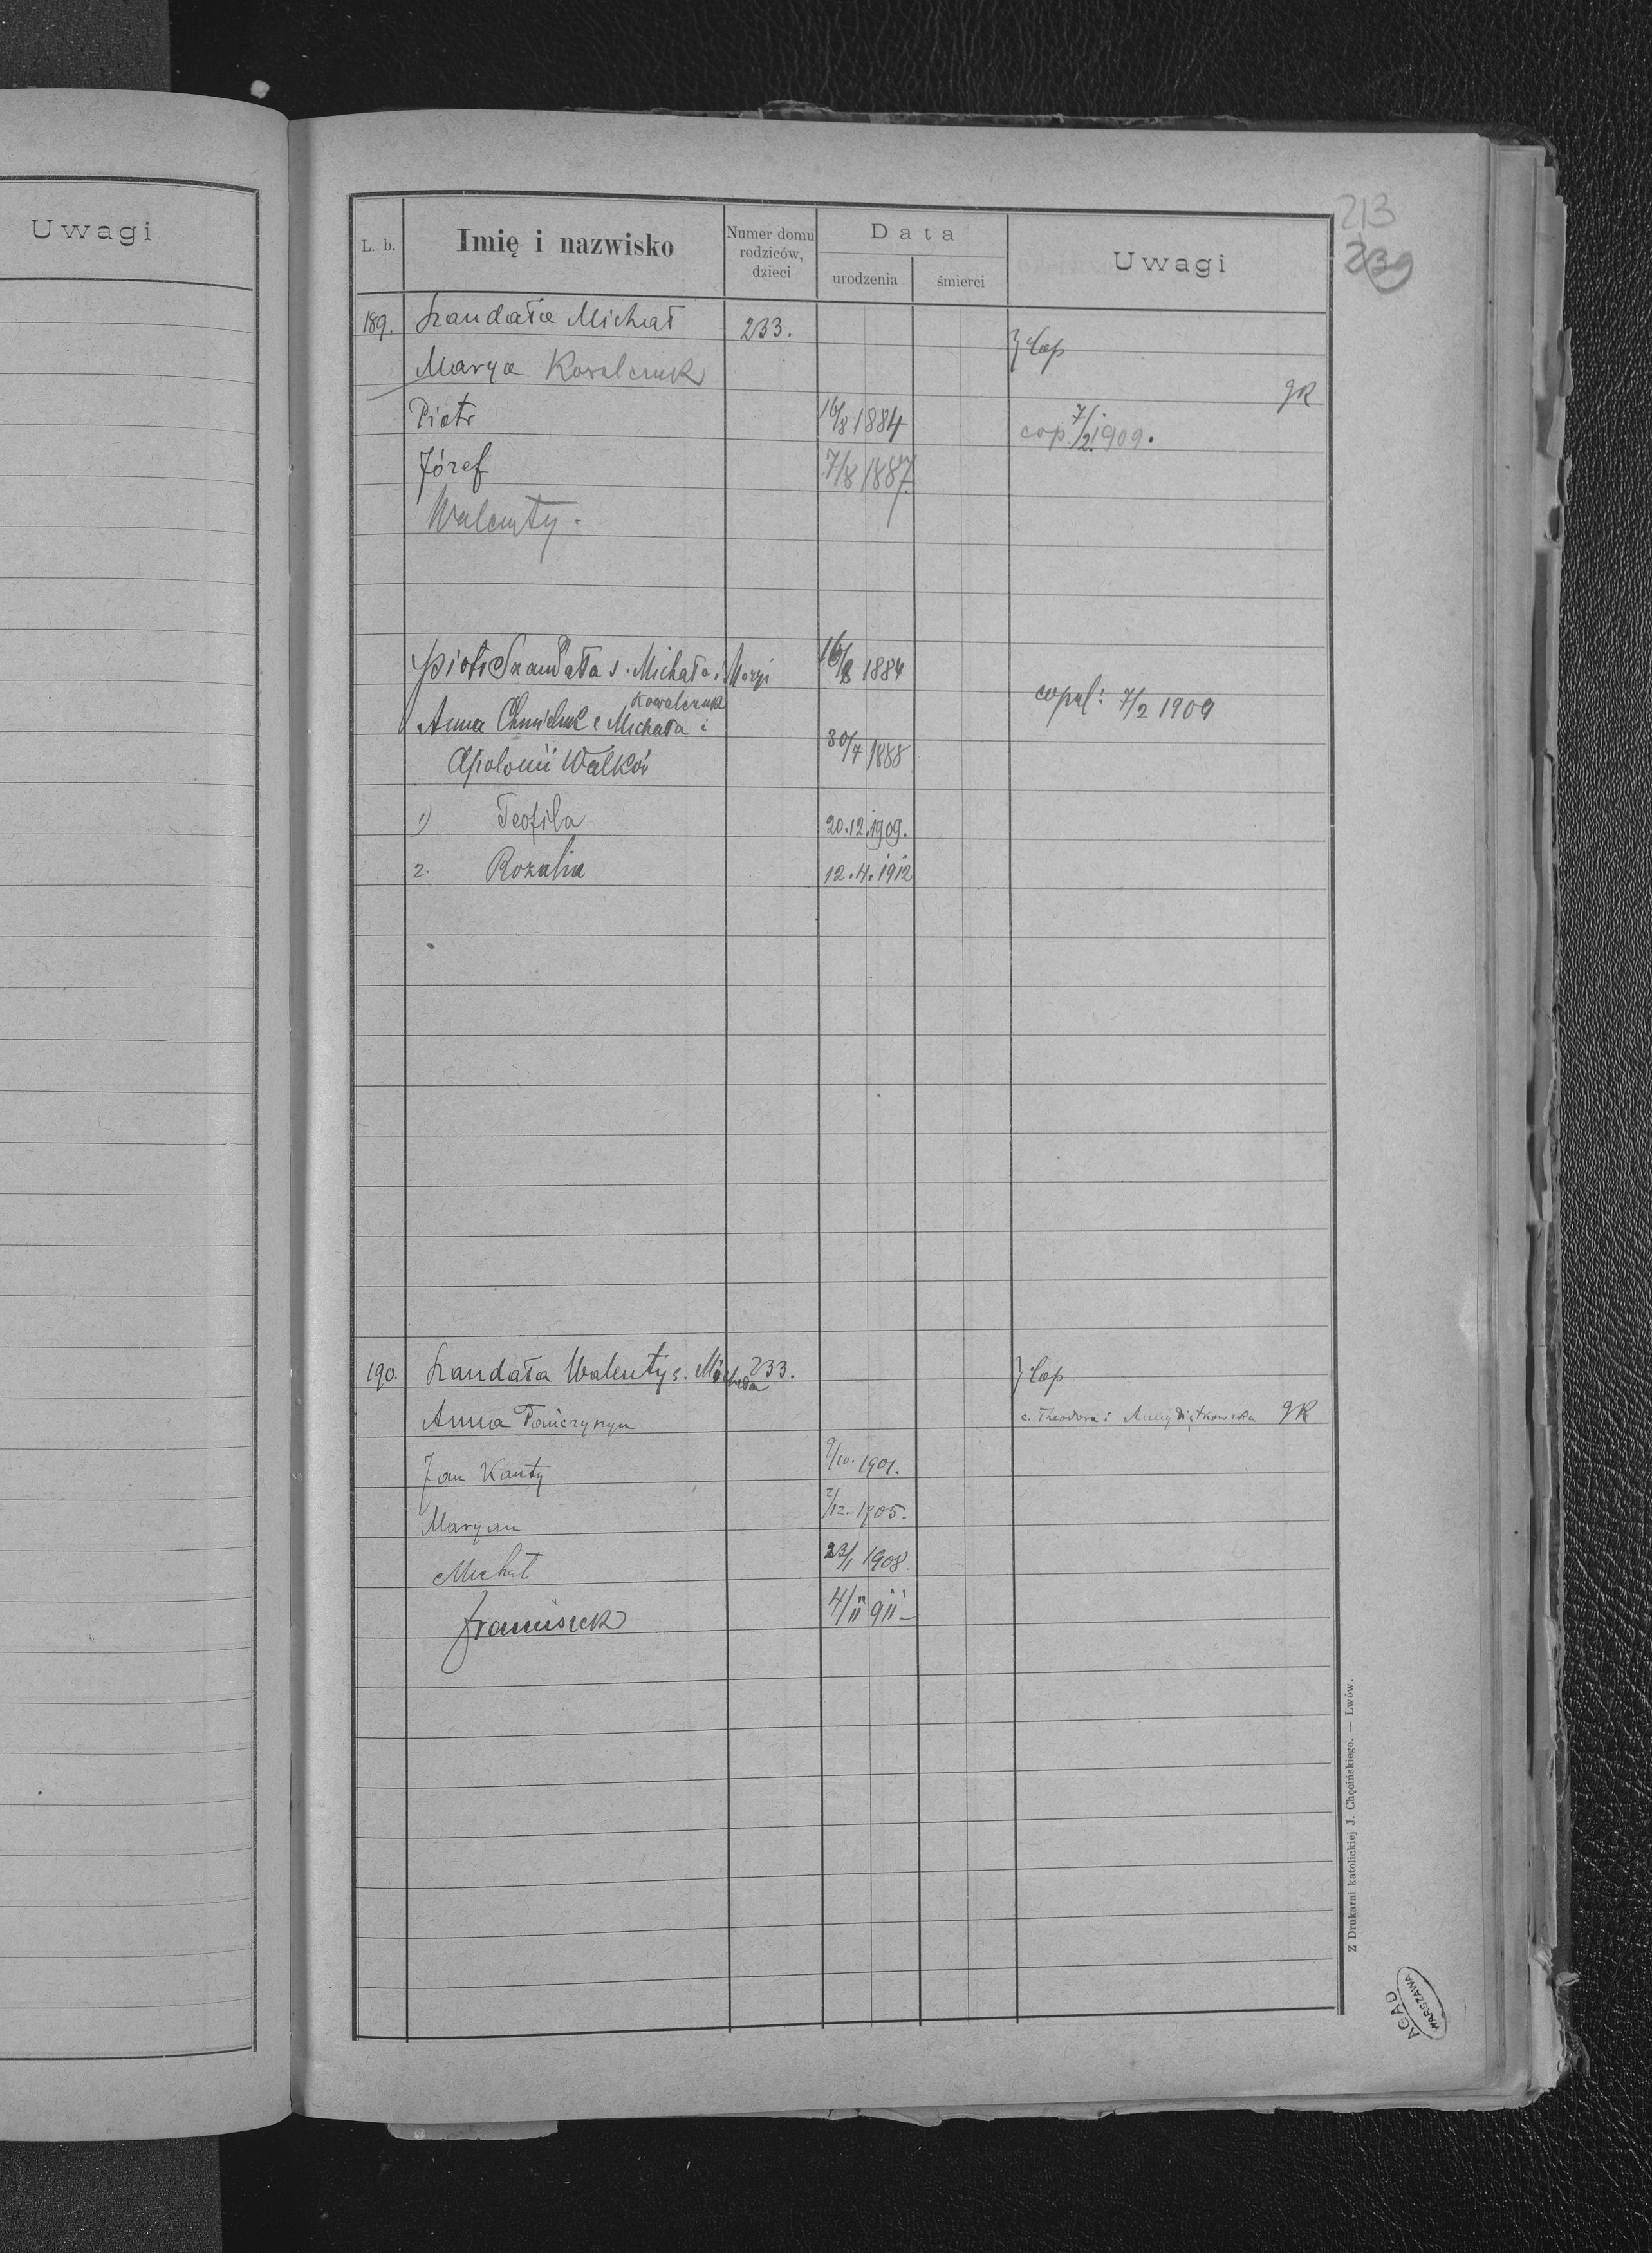 Uwagi
213
239
L. b. Imię i nazwisko Numer domu rodziców, dzieci Data urodzenia śmierci Uwagi
189. Szandała Michał 233. } Cop
Marya Kowalczuk gR
Piotr 16/8 1884 cop. 7/2.1909.
Józef 7/8 1887.
Walenty.
Piotr Szandała s. Michała i Maryi 16/8 1884
Kowalczuk copul: 7/2 1909
Anna Chmieluk c Michała i
Apolonii Walków 30/7 1888
1) Teofila 20.12.1909.
2. Rozalia 12.4.1912
190. Szandała Walenty s. Michała 233. } Cop
Anna Tańczyszyn c. Theodora i Anny gR
Jan Kanty 9/10. 1901.
Maryan 2/12. 1905.
Michał 23/1 1908.
Franciszek 4/11 911
Z Drukarni katolickiej J. Chęcińskiego. — Lwów.
AGAD
WARSZAWA